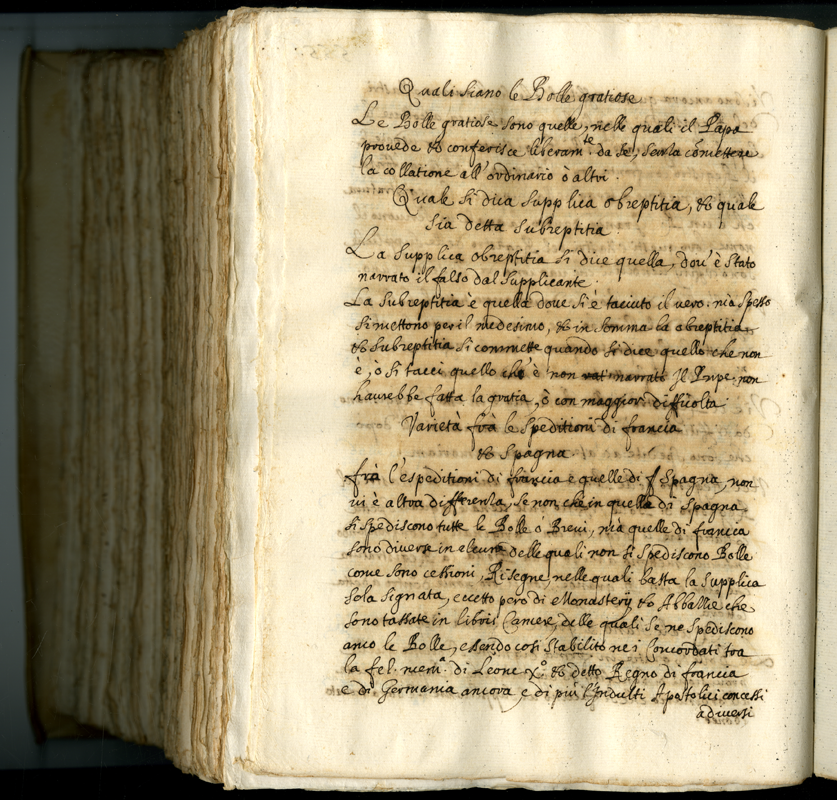 Quali siano le Bolle gratiose
Le Bolle gratiose sono quelle, nelle quali il Papa
provede et conferisce liberam.te da se, senza cõmettere
la collatione all'ordinario ò altri.
Quale si dica supplica obreptitia, et quale
sia detta subreptitia
La supplica obreptitia si dice quella, dov'è stato
narrato il falso dal supplicante.
La subreptitia è quella dove si è taciuto il vero. mà spesso
si mettono per il medesimo, et in somma la obreptitia
et subreptitia si commette quando si dice quello che non
è, ò si tacci quello che è non narrato Il Papa non
havrebbe fatta la gratia, ò con maggior difficolta
Varietà frà le speditioni di francia
et Spagna
frà l'espeditioni di francia e quelle di Spagna, non
vi è altra differenza, se non che in quella di Spagna
si spediscono tutte le Bolle o Brevi, mà quelle di francia
sono diverse in alcune delle quali non si spediscono Bolle
come sono cessioni, Risegne, nelle quali basta la supplica
sola signata, eccetto però di Monasterij et Abbatie che
sono tassate in libris Camere, delle quali se ne spediscono
anco le Bolle, essendo così stabilito nei Concordati tra
la fel. mem.a di Leone X.o et detto Regno di francia
e di Germania ancora e di più l'Indulti Apostolici concessi
a diversi